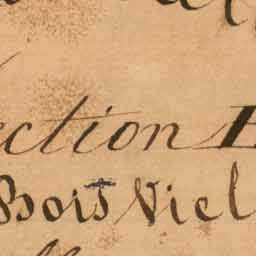 ection E
Bois Viel